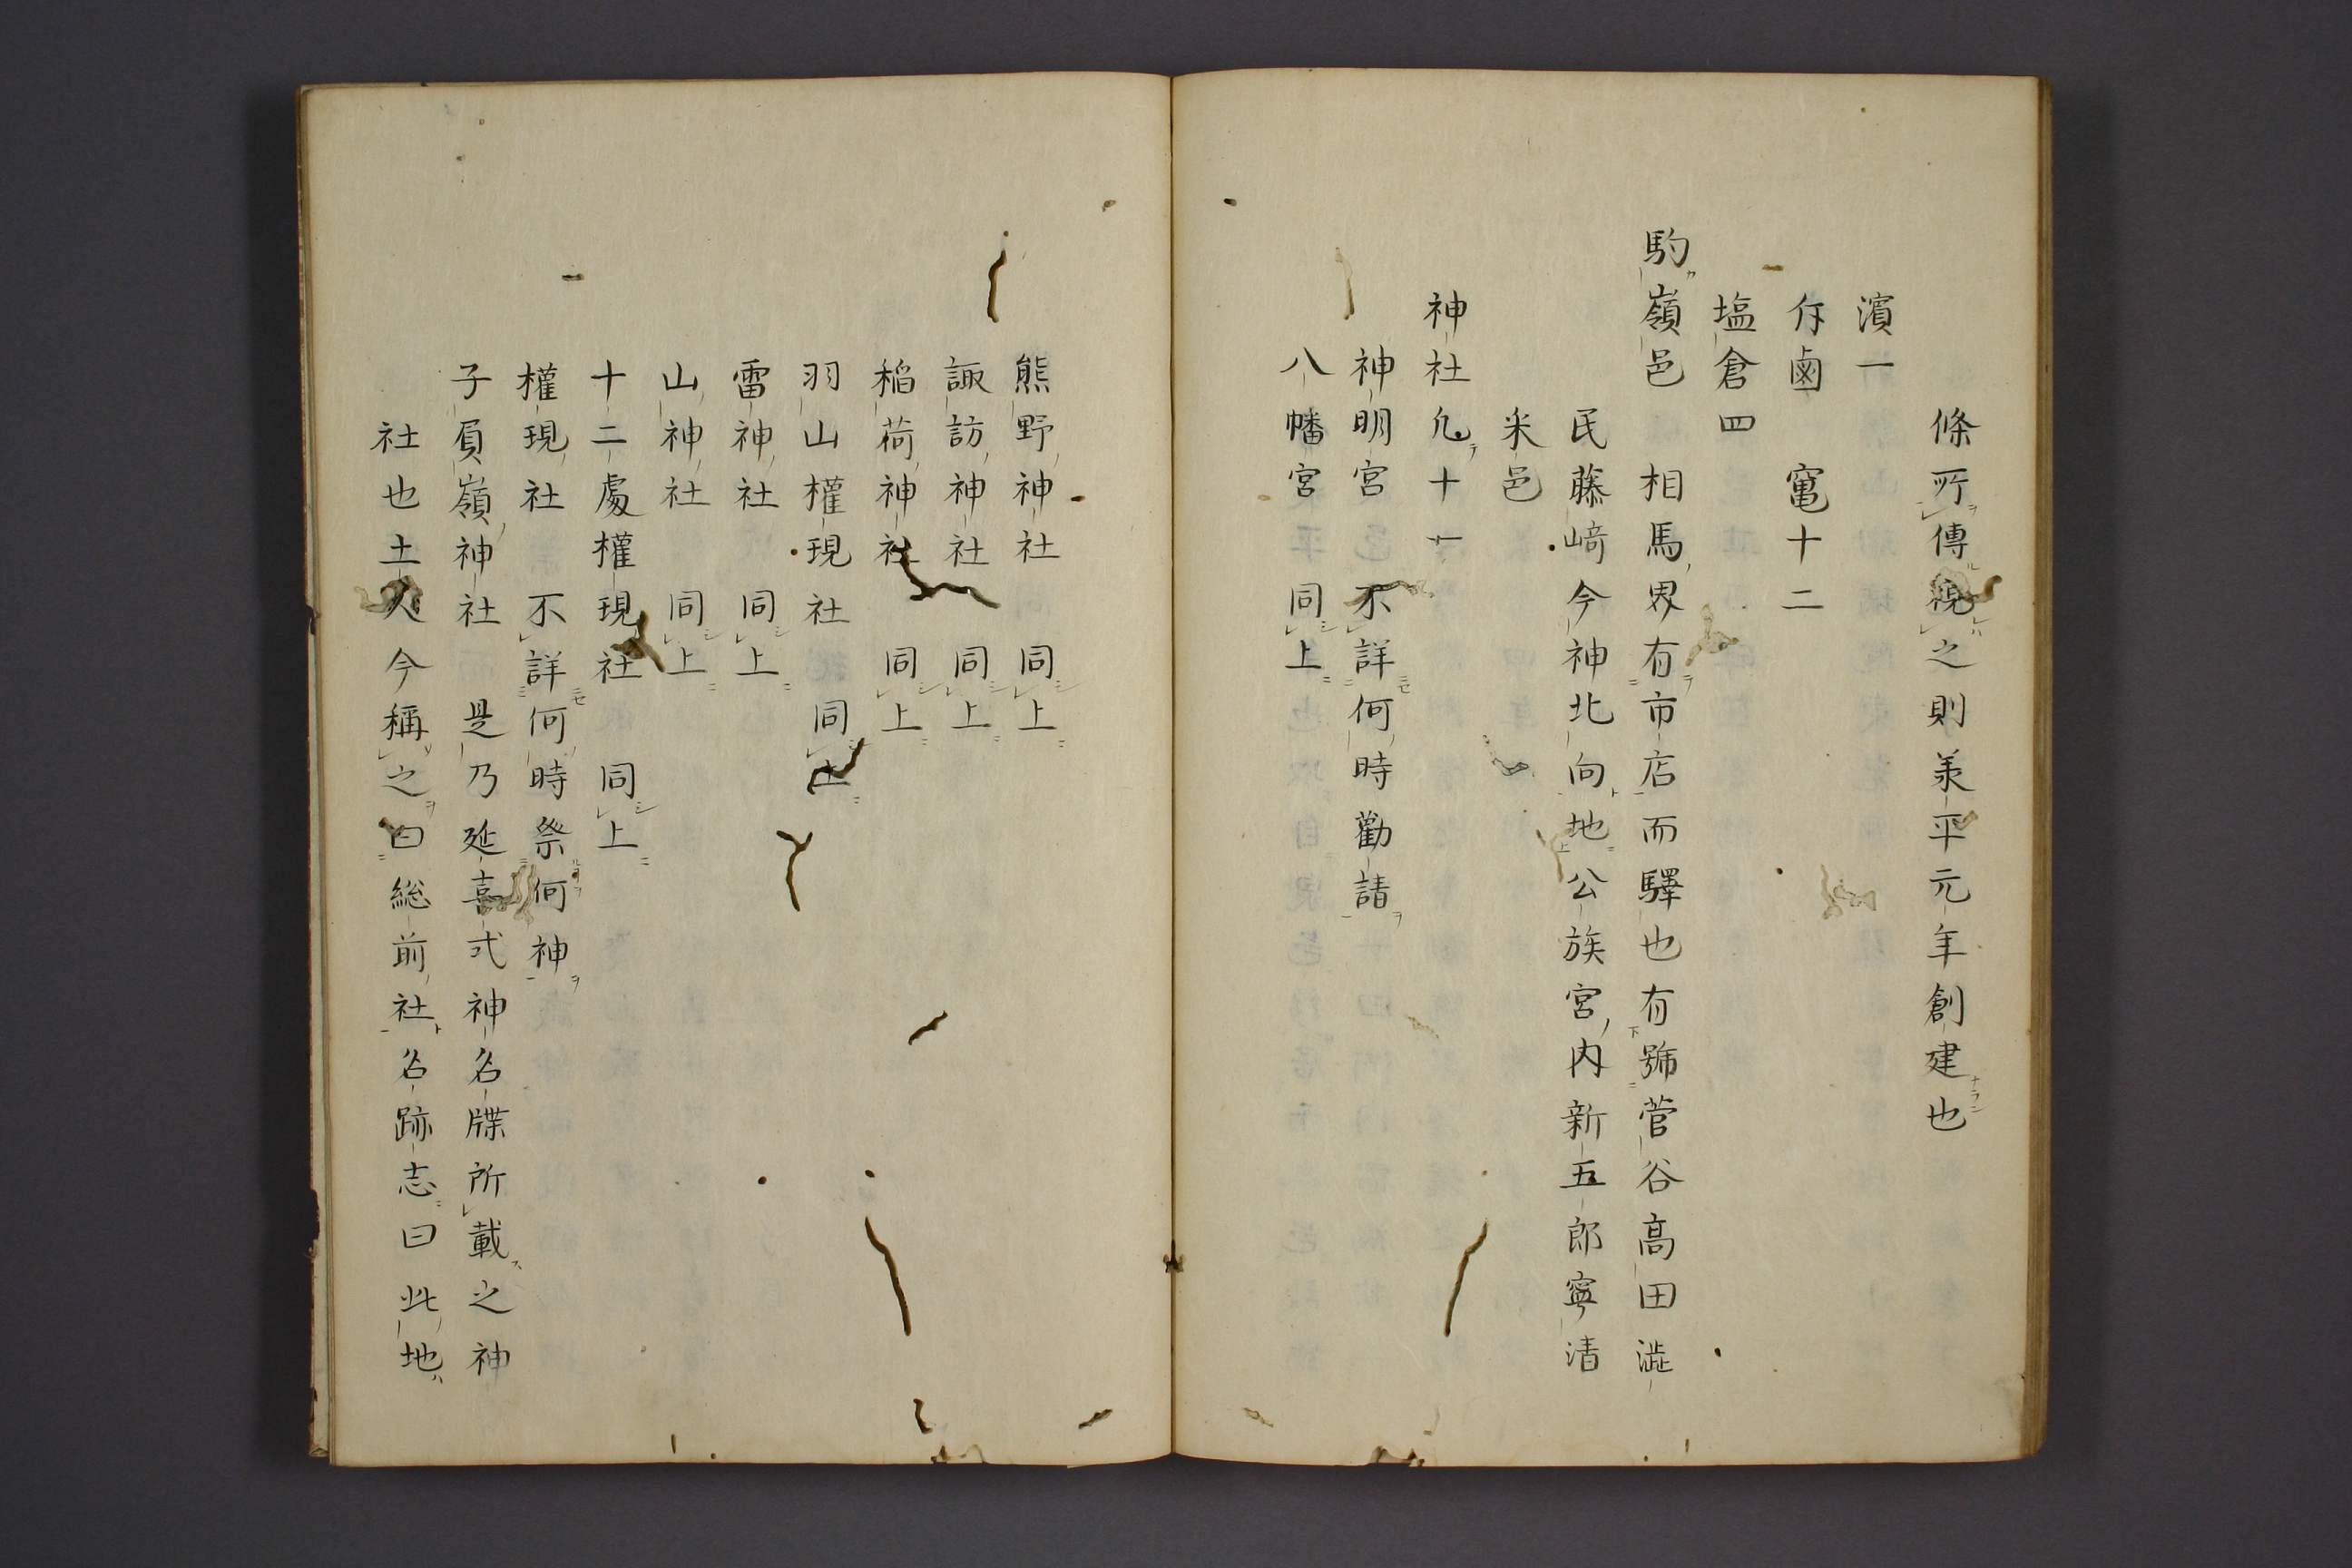 條所傳視之則羕平元年創建也
濱一
斥鹵　竃十二
塩倉四
駒嶺邑　相馬界有市店而驛也有號菅谷髙田澁
民藤﨑今神北向地公族宮内新五郎寧清
釆邑
神社凢十一
神明宮　不詳何時勸請
八幡宮　同上
熊野神社　同上
諏訪神社　同上
稲荷神社　同上
羽山權現社　同上
雷神社　同上
山神社　同上
十二處權現社　同上
權現社　不詳何時祭何神
子負嶺神社　是乃延喜式神名牒所載之神
社也土人今稱之曰総前社名跡志曰此地